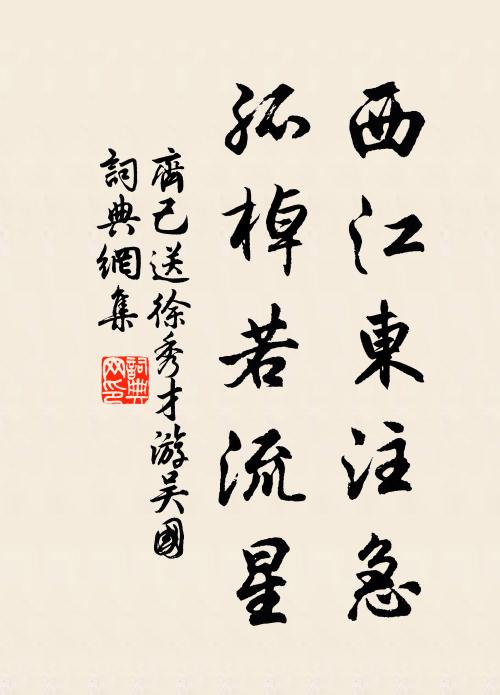 西江東注急
孤棹若流星
齊己送徐秀才游吴國
詞典網集
詞典网印